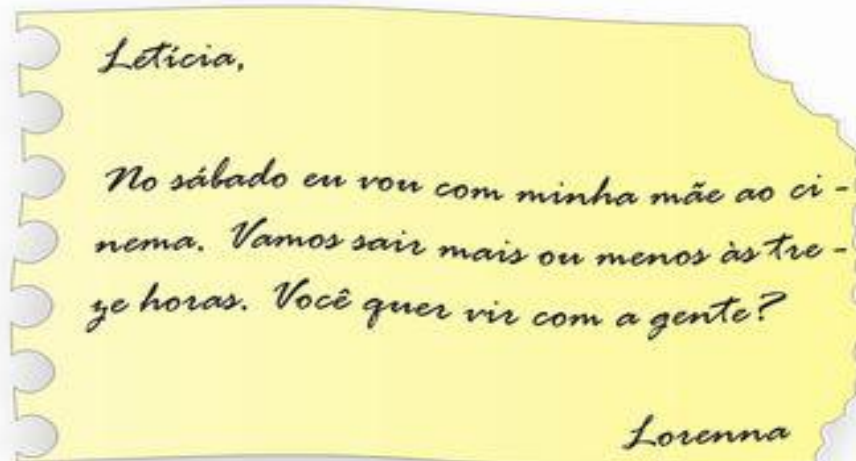 Letícia,
No sábado eu vou com minha mãe ao ci -
nema. Vamos sair mais ou menos às tre -
ze horas. Você quer vir com a gente?
Lorenna